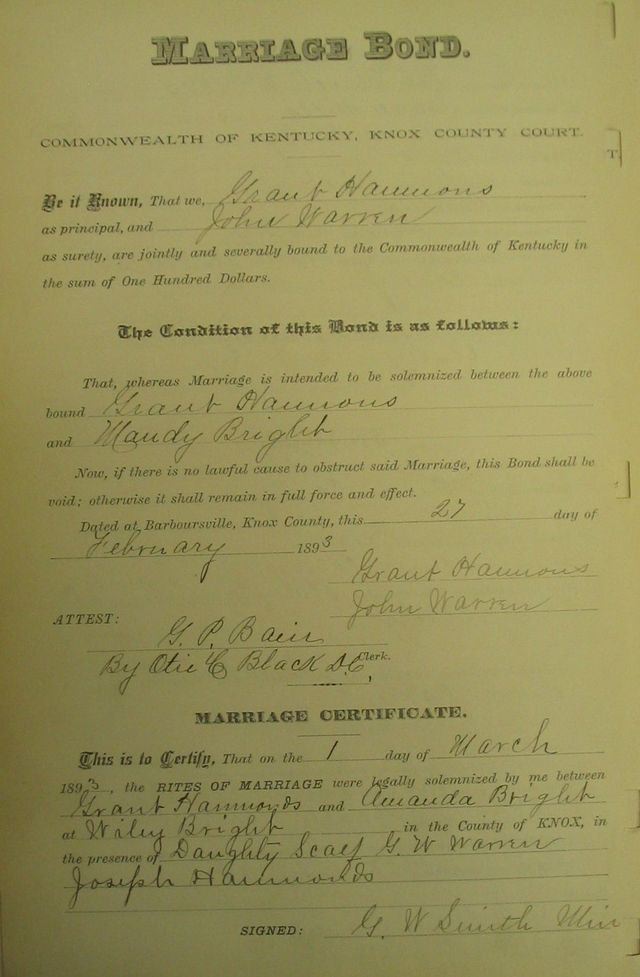 MARRIAGE BOND.
COMMONWEALTH OF KENTUCKY, KNOX COUNTY COURT.
T.
Be it Known, That we, Grant Hammons
as principal, and John Warren
as surety, are jointly and severally bound to the Commonwealth of Kentucky in
the sum of One Hundred Dollars.
The Condition of this Bond is as follows:
That, whereas Marriage is intended to be solemnized between the above
bound Grant Hammons
and Mandy Bright
Now, if there is no lawful cause to obstruct said Marriage, this Bond shall be
void; otherwise it shall remain in full force and effect.
Dated at Barboursville, Knox County, this 27 day of
February 1893
Grant Hammons
John Warren
ATTEST:
G. P. Bain
By Otie C Black D.C. Clerk.
MARRIAGE CERTIFICATE.
This is to Certify, That on the 1 day of March
1893, the RITES OF MARRIAGE were legally solemnized by me between
Grant Hammonds and Amanda Bright
at Wiley Bright in the County of KNOX, in
the presence of Daughty Scalf G. W Warren
Joseph Hammonds
SIGNED: G. W Smith Min